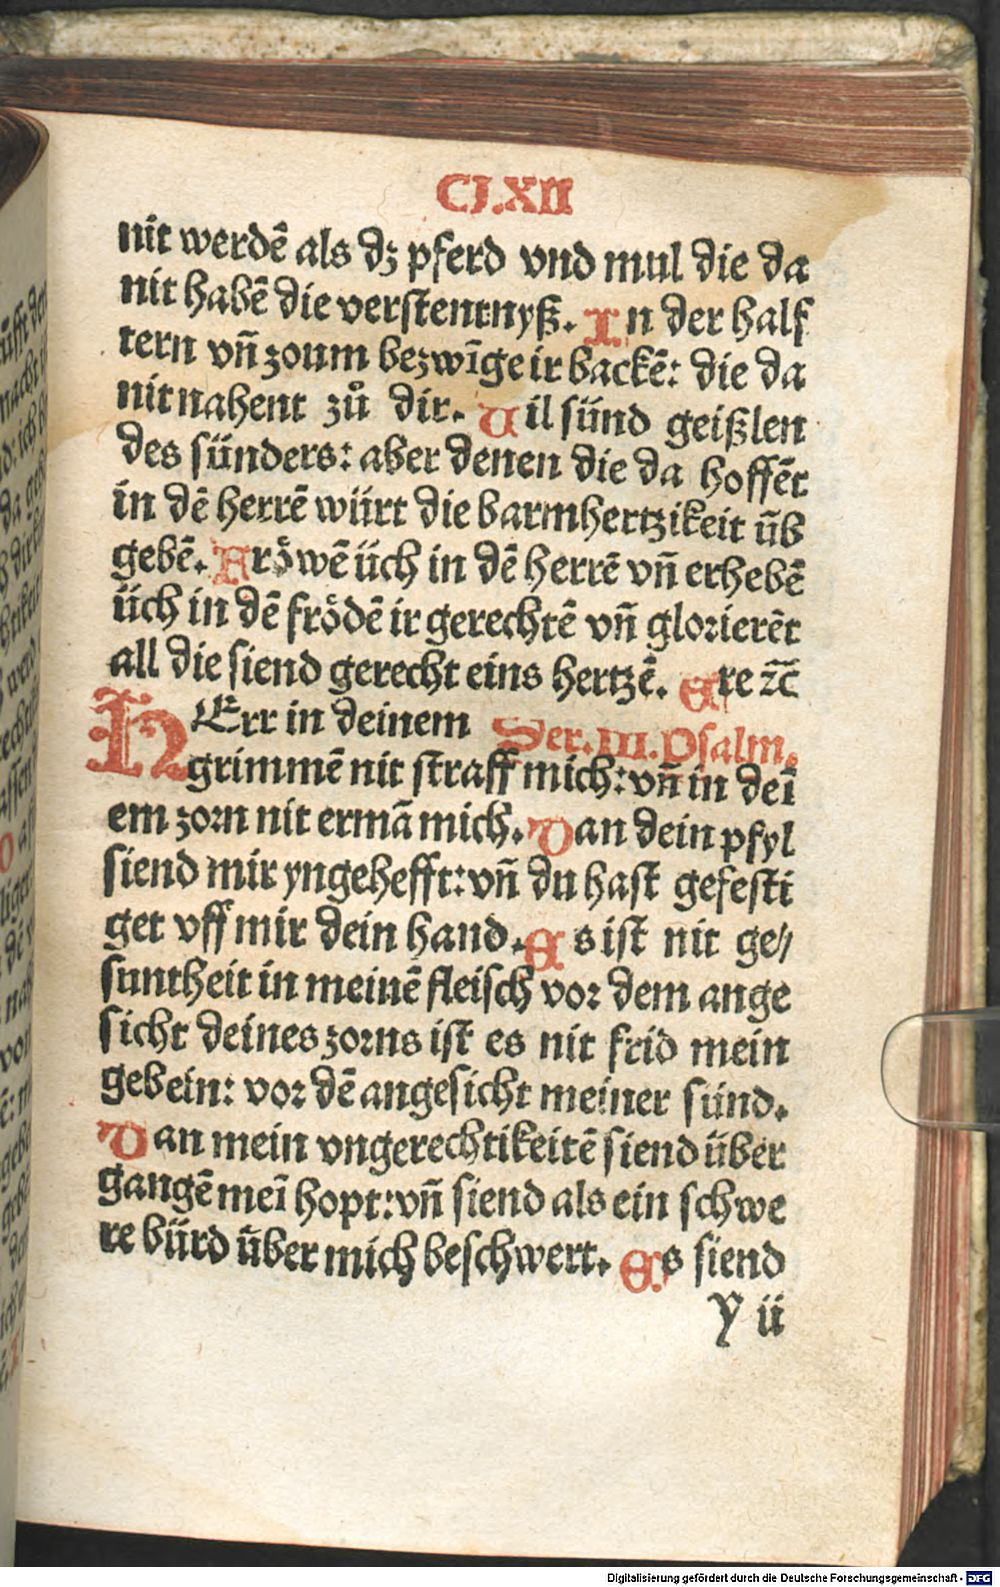 CJ.XII
nit werdē als dz pferd vnd mul die da
nit habē die verstentnyß. In der half
tern vñ zoum bezwīge ir backē: die da
nit nahent zů dir. Uil sünd geißlen
des sünders: aber denen die da hoffēt
in dē herrē würt die barmhertzikeit ūb
gebē. Frǒwē üch in dē herrē vñ erhebē
üch in dē frödē ir gerechtē vñ glorierēt
all die siend gerecht eins hertzē. Ere ⁊c̄
HErr in deinem Der.III.Psalm.
grimmē nit straff mich: vñ in deī
em zorn nit ermā mich. Dan dein pfyl
siend mir yngehefft: vñ du hast gefesti
get vff mir dein hand. Es ist nit ge⸗
suntheit in meinē fleisch vor dem ange
sicht deines zorns ist es nit frid mein
gebein: vor dē angesicht meiner sünd.
Dan mein vngerechtikeitē siend über
gangē meī hopt: vñ siend als ein schwe
re bürd über mich beschwert. Es siend
y ii
Digitalisierung gefördert durch die Deutsche Forschungsgemeinschaft - DFG